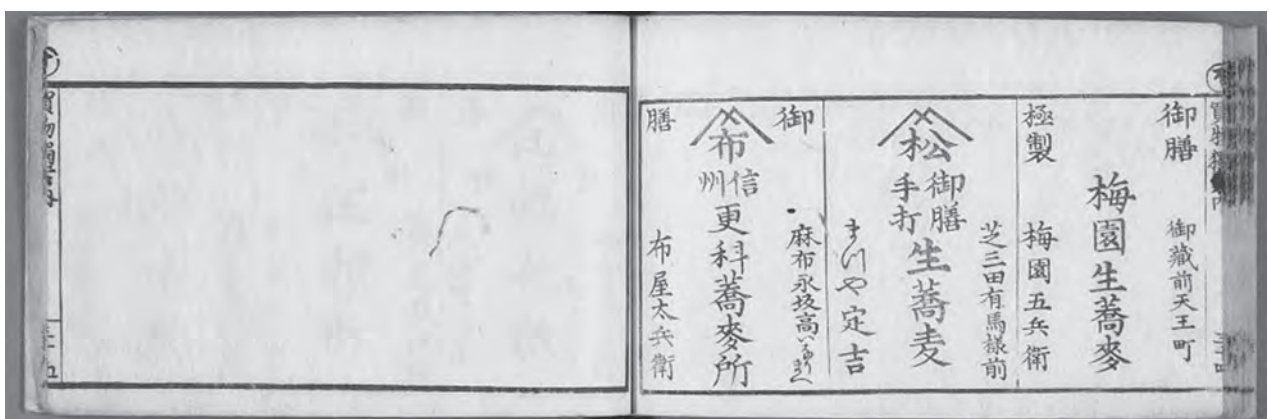 御膳
御蔵前天王町
梅園生蕎麥
極製
梅園五兵衛
芝三田有馬様前
松
御膳
手打
生蕎麦
まつや定吉
御
麻布永坂高いなりまへ
布
信州
更科蕎麥所
膳
布屋太兵衛